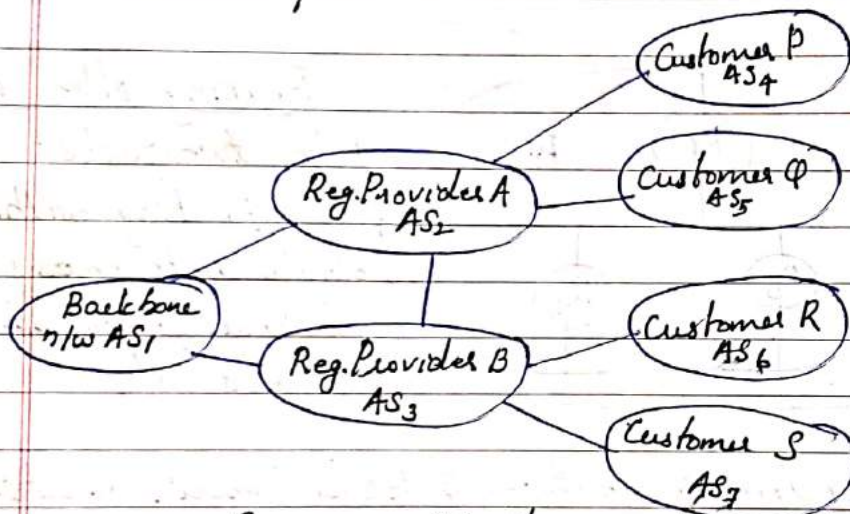 Customer P
AS4
Customer Q
AS5
Reg. Provider A
AS2
Backbone
n/w AS1
Reg. Provider B
AS3
Customer R
AS6
Customer S
AS7